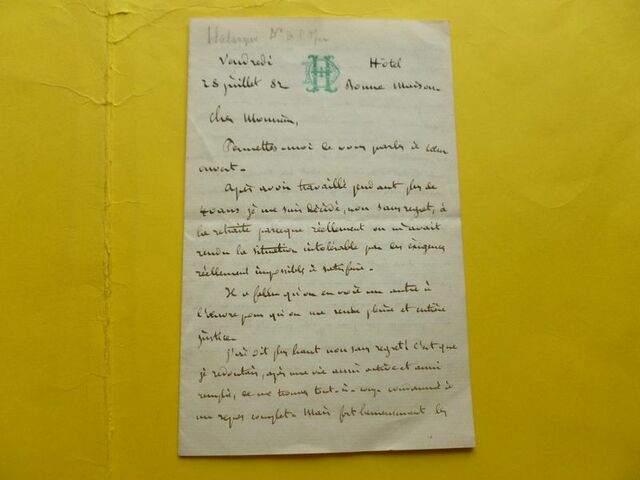 Vendredi
28 juillet 82
Hôtel
Bonne Maison
Cher Monsieur,
Permettez-moi de vous parler à cœur
ouvert.
Après avoir travaillé pendant plus de
40 ans je me suis décidé, non sans regret, à
la retraite parceque réellement on m'avait
rendu la situation intolérable par des exigences
réellement impossibles à satisfaire.
Il a fallu qu'on en voie un autre à
l'œuvre pour qu'on me rende pleine et entière
justice.
J'ai dit plus haut non sans regret! C'est que
je redoutais, après une vie aussi active et aussi
remplie, de me trouver tout-à-coup condamné à
un repos complet. Mais fort heureusement les